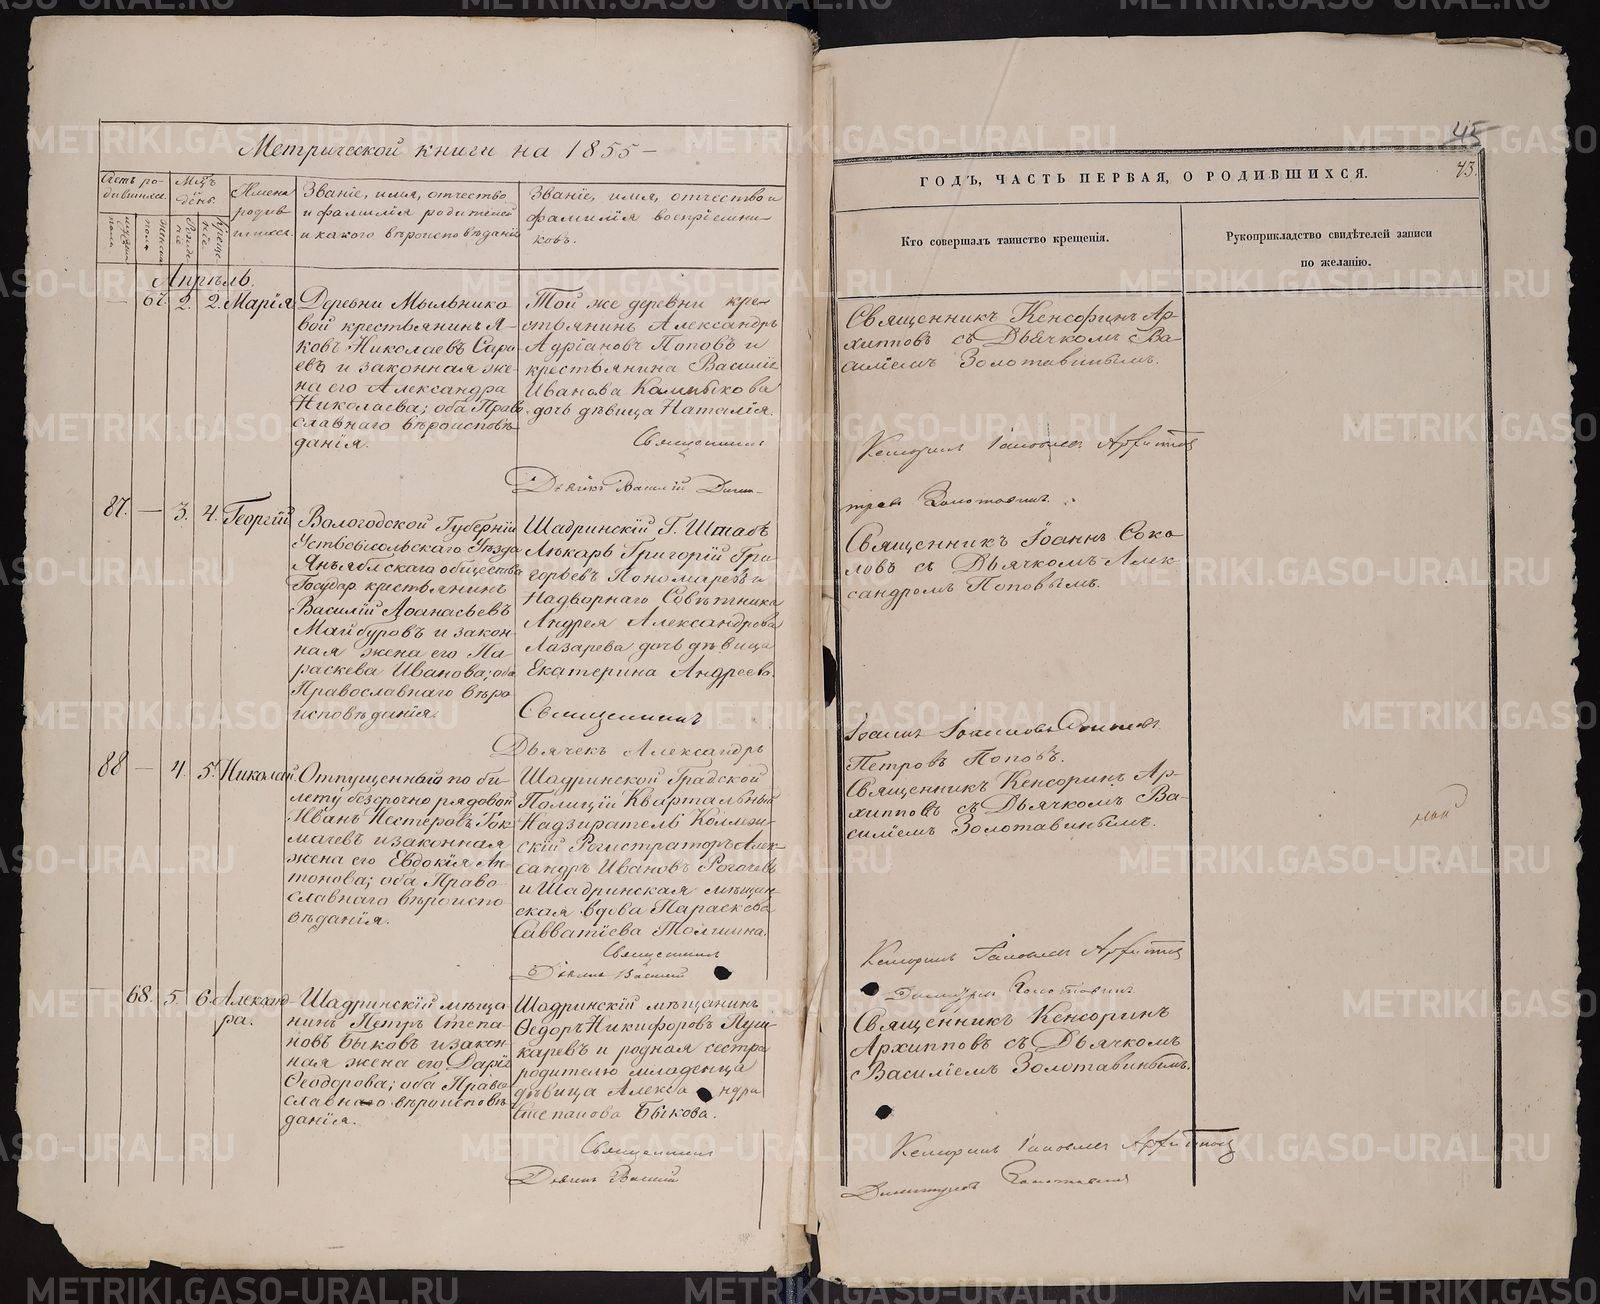 Метрической книги на 1855 —
Счетъ ро-
дившихся.
Мѣс.
день.
Имена
родив-
шихся.
Званіе, имя, отчество
и фамилія родителей
и какого вѣроисповѣданія
Званіе, имя, отчество и
фамилія воспріемни-
ковъ.
Апрѣль.
— 67. 2. 2. Марія
Деревни Мыльнико
вой крестьянинъ Я-
ковъ Николаевъ
и законная же-
на его Александра
Николаева; оба Право
славнаго вѣроисповѣ
данія.
Той же деревни кре-
стьянинъ Александръ
Адріановъ Поповъ и
крестьянина Василія
Иванова
дочь дѣвица Наталія.
Священникъ
Дьячекъ Василій
87. — 3. 4. Георгій
Вологодской Губерніи
Устьсысольскаго Уѣзда
общества
Государ. крестьянинъ
Василій Аѳанасьевъ
Майбуровъ и закон-
ная жена его Па-
раскева Иванова; оба
Православнаго вѣро
исповѣданія.
Шадринскій Г. Штабъ
Лѣкарь Григорій Гри
горьевъ Пономаревъ и
Надворнаго Совѣтника
Андрея Александрова
Лазарева дочь дѣвица
Екатерина Андреева.
Священникъ
Дьячекъ Александръ
88 — 4. 5. Николай.
Отпущенный по би-
лету безсрочно рядовой
Иванъ Нестеровъ
и законная
жена его Евдокія Ан-
тонова; оба Право-
славнаго вѣроиспо
вѣданія.
Шадринской Градской
Полиціи Квартальный
Надзиратель Коллежс-
скій Регистраторъ Алек-
сандръ Ивановъ Рогачевъ
и Шадринская мѣщан-
ская вдова Параскева
Савватіева
Священникъ
Дьячекъ Василій
— 68. 5. 6. Александ-
ра.
Шадринскій мѣща
нинъ Петръ Степа-
новъ Быковъ и закон-
ная жена его Дарія
Ѳеодорова; оба Право
славнаго вѣроисповѣ
данія.
Шадринскій мѣщанинъ
Ѳедоръ Никифоровъ Пуш-
каревъ и родная сестра
родителю младенца
дѣвица Алекса ндра
Степанова Быкова.
Священникъ
Дьячекъ Василій
45
43.
ГОДЪ, ЧАСТЬ ПЕРВАЯ, О РОДИВШИХСЯ.
Кто совершалъ таинство крещенія.
Рукоприкладство свидѣтелей записи
по желанію.
Священникъ Кенсоринъ Ар-
хипповъ съ Дьячкомъ Ва-
силіемъ Золотавинымъ.
Кенсоринъ Архипповъ
Золотавинъ.
Священникъ Іоаннъ Соко
ловъ съ Дьячкомъ Алек
сандромъ Поповымъ.
Іоаннъ
Петровъ Поповъ.
Священникъ Кенсоринъ Ар-
хипповъ съ Дьячкомъ Ва-
силіемъ Золотавинымъ.
Кенсоринъ Архипповъ
Золотавинъ
Священникъ Кенсоринъ
Архипповъ съ Дьячкомъ
Василіемъ Золотавинымъ.
Кенсоринъ Архипповъ
Золотавинъ
METRIKI.GASO-URAL.RU